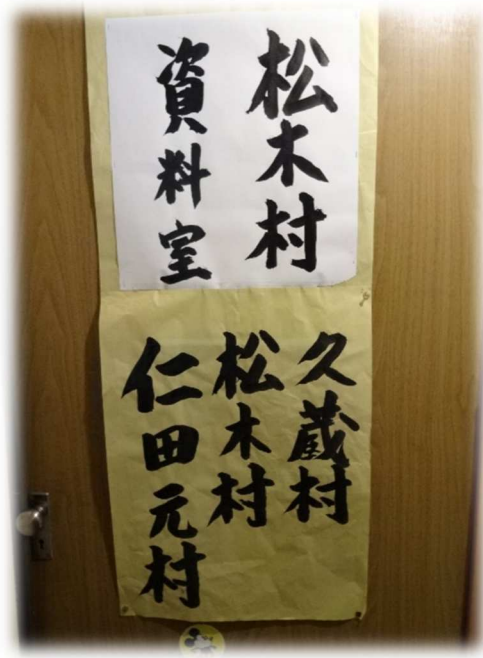 松木村
資料室
久蔵村
松木村
仁田元村